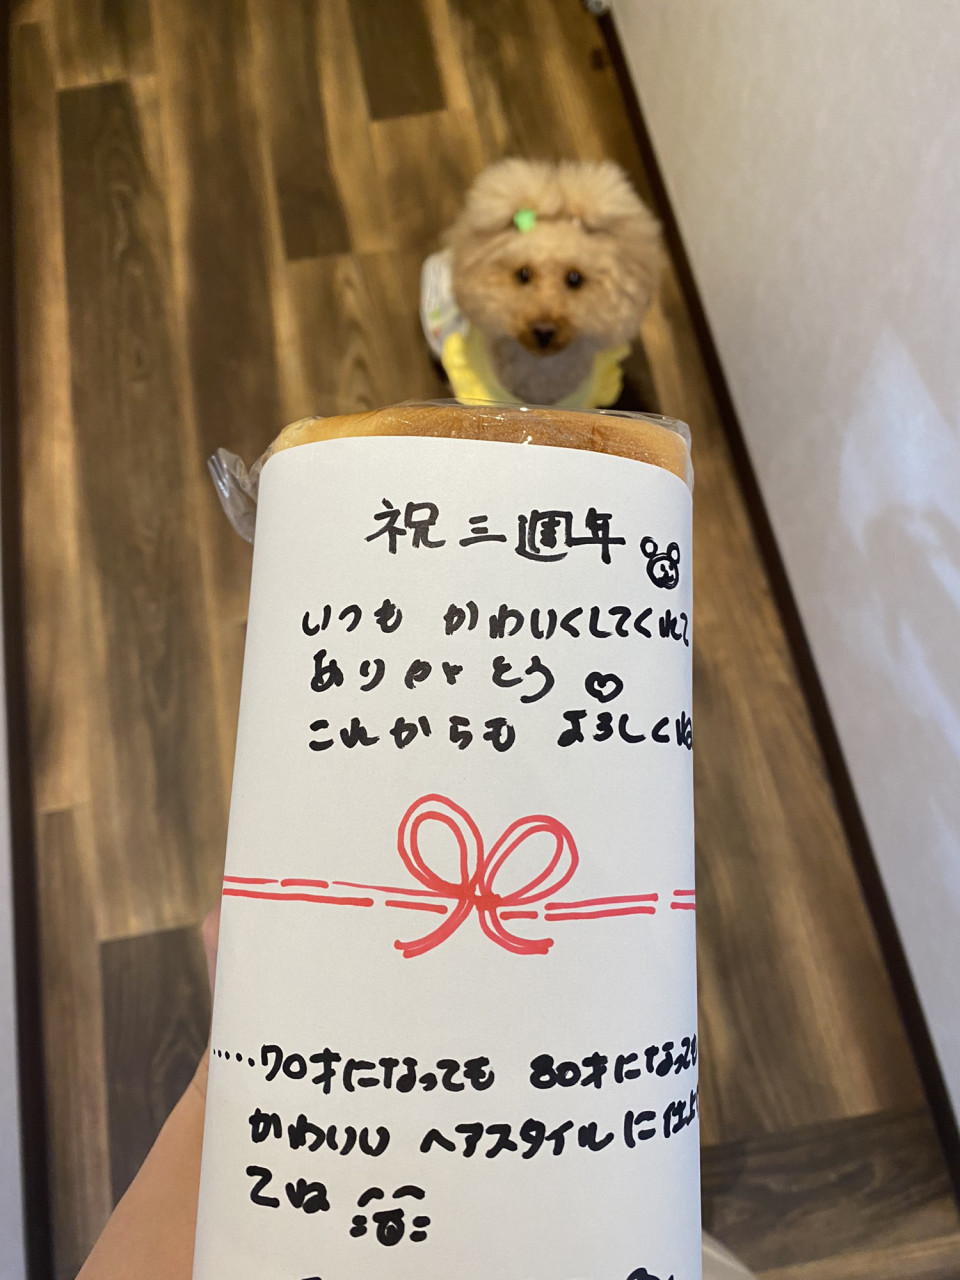 祝三週年
いつも かわいくしてくれて
ありがとう
これからも よろしくね
.....70才になっても 80才になっても
かわいい ヘアスタイルに仕上
てね